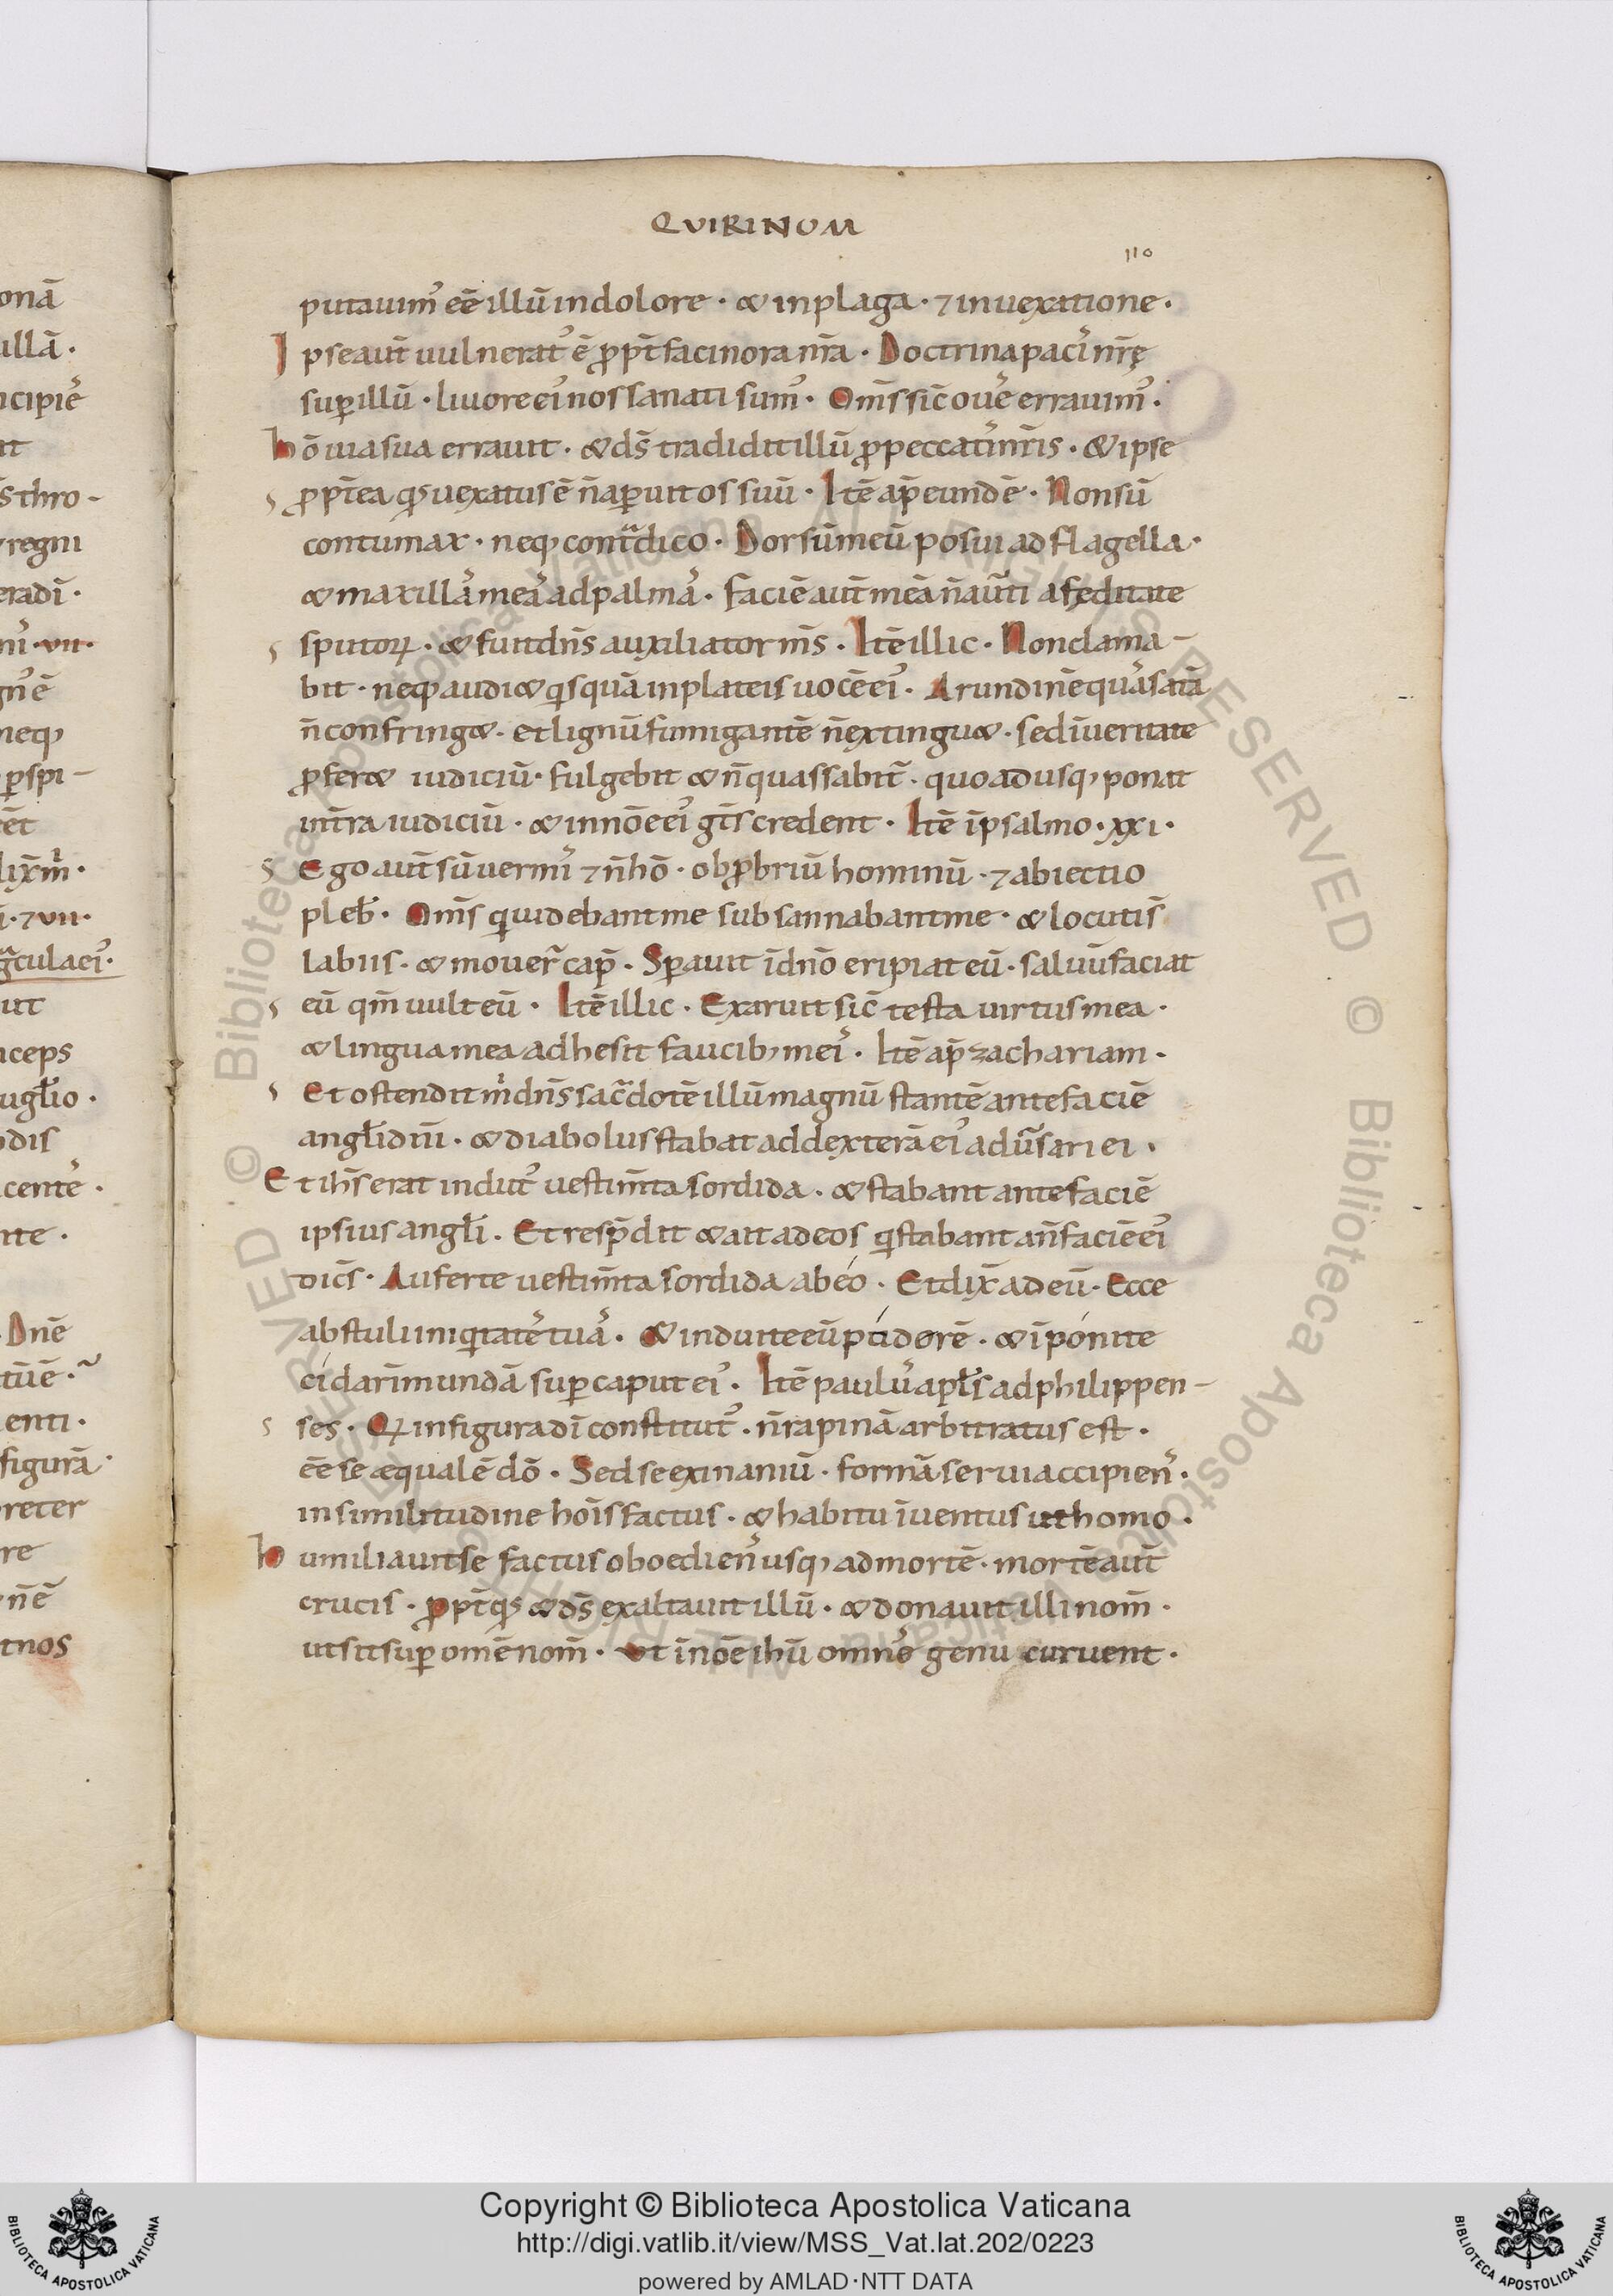 QVIRINUM
110
putauim᾿ eē illū in dolore · & in plaga · ⁊ in uexatione ·
Ipse aut̄ uulnerat᾿ ē ꝓpt̄ facinora nr̄a · Doctrina paci᾿ nr̄ę
suꝑ illū · liuore ei᾿ nos sanati sum᾿ · Om̄s sic̄ oue᾿ errauim᾿ ·
hō uia sua errauit · & ds̄ tradidit illū ꝓ peccati᾿ nr̄is · & ipse
ꝓpt̄ea qs uexatus ē n̄ aꝑuit os suū · Itē ap̄ eundē · Non sū
contumax · neq; contradico · Dorsū meū posui ad flagella ·
& maxilla᾿ mea᾿ ad palma᾿ · faciē aut̄ meā n̄ au᾿ti a fęditate
sputoꝝ · & fuit dn̄s auxiliator ms̄ · Itē illic · Non clama-
bit · neq; audi& qisquā in plateis uocē ei᾿ · Arundinē qua᾿satā
n̄ confring& · et lignū fumigantē n̄ extingu& · sed ī ueritate
ꝓfer& iudiciū · fulgebit & n̄ quassabit᾿ · quoadusq; ponat
int̄ra iudiciū · & in nōe ei᾿ gt̄s credent · Itē ī psalmo · xxi ·
Ego aut̄ sū uermi᾿ ⁊ n̄ hō · obꝓbriū hominū · ⁊ abiectio
pleb᾿ · Om̄s qi uidebant me subsannabant me · & locuti s̄
labiis · & mouer᾿ cap̄ · Sꝑauit ī dn̄o eripiat eū · saluū faciat
eū qm̄ uult eū · Itē illic · Exaruit sic̄ testa uirtus mea ·
& lingua mea adhesit faucib; mei᾿ · Itē ap̄ zachariam ·
Et ostendit m dn̄s sac᾿dotē illū magnū stantē ante faciē
angłi dm̄ · & diabolus stabat ad dexterā ei᾿ adu᾿sari ei ·
Et ih̄s erat indut᾿ uestim̄ta sordida · & stabant ante faciē
ipsius angłi · Et resp̄dit & ait ad eos qi stabant an̄ faciē ei᾿
dic̄s · Auferte uestim̄ta sordida ab eo · Et dix̄ ad eū · Ecce
abstuli iniqitate᾿ tua᾿ · & induite eū pod erē · & īponite
cidarim̄ mundā suꝑ caput ei᾿ · Itē paulu᾿ apłs ad philippen-
ses · Qi in figura dī constitut᾿ · n̄ rapinā arbitratus est ·
eē se æqualē dō · Sed se exinaniū · formā serui accipien᾿ ·
in similitudine hoīs factus · & habitu īuentus ut homo ·
humiliauit se factus oboedien᾿ usq; ad mortē · mortē aut̄
crucis · ꝓpt̄ qs & ds̄ exaltauit illū · & donauit illi nom̄ ·
ut sit suꝑ omē nom̄ · Ut ī nōe ihū omne genu curuent ·
onā
ullā ·
ncipie᾿
ut
s̄ thro-
regni
era dī ·
ni᾿ · vii ·
gn᾿ ē
neq;
ꝑspi-
ēt
lix̄ m ·
· ⁊ vii ·
cula ei᾿ ·
ut
nceps
ugłio ·
dis
cente᾿ ·
nte ·
Dnē
tūē ·
enti ·
figurā ·
preter
re
nē
tnos
© Biblioteca Apostolica Vaticana ALL RIGHTS RESERVED © Biblioteca Apostolica Vaticana ALL RIGHTS RESERVED
Copyright © Biblioteca Apostolica Vaticana
http://digi.vatlib.it/view/MSS_Vat.lat.202/0223
powered by AMLAD·NTT DATA
BIBLIOTECA APOSTOLICA VATICANA
BIBLIOTECA APOSTOLICA VATICANA